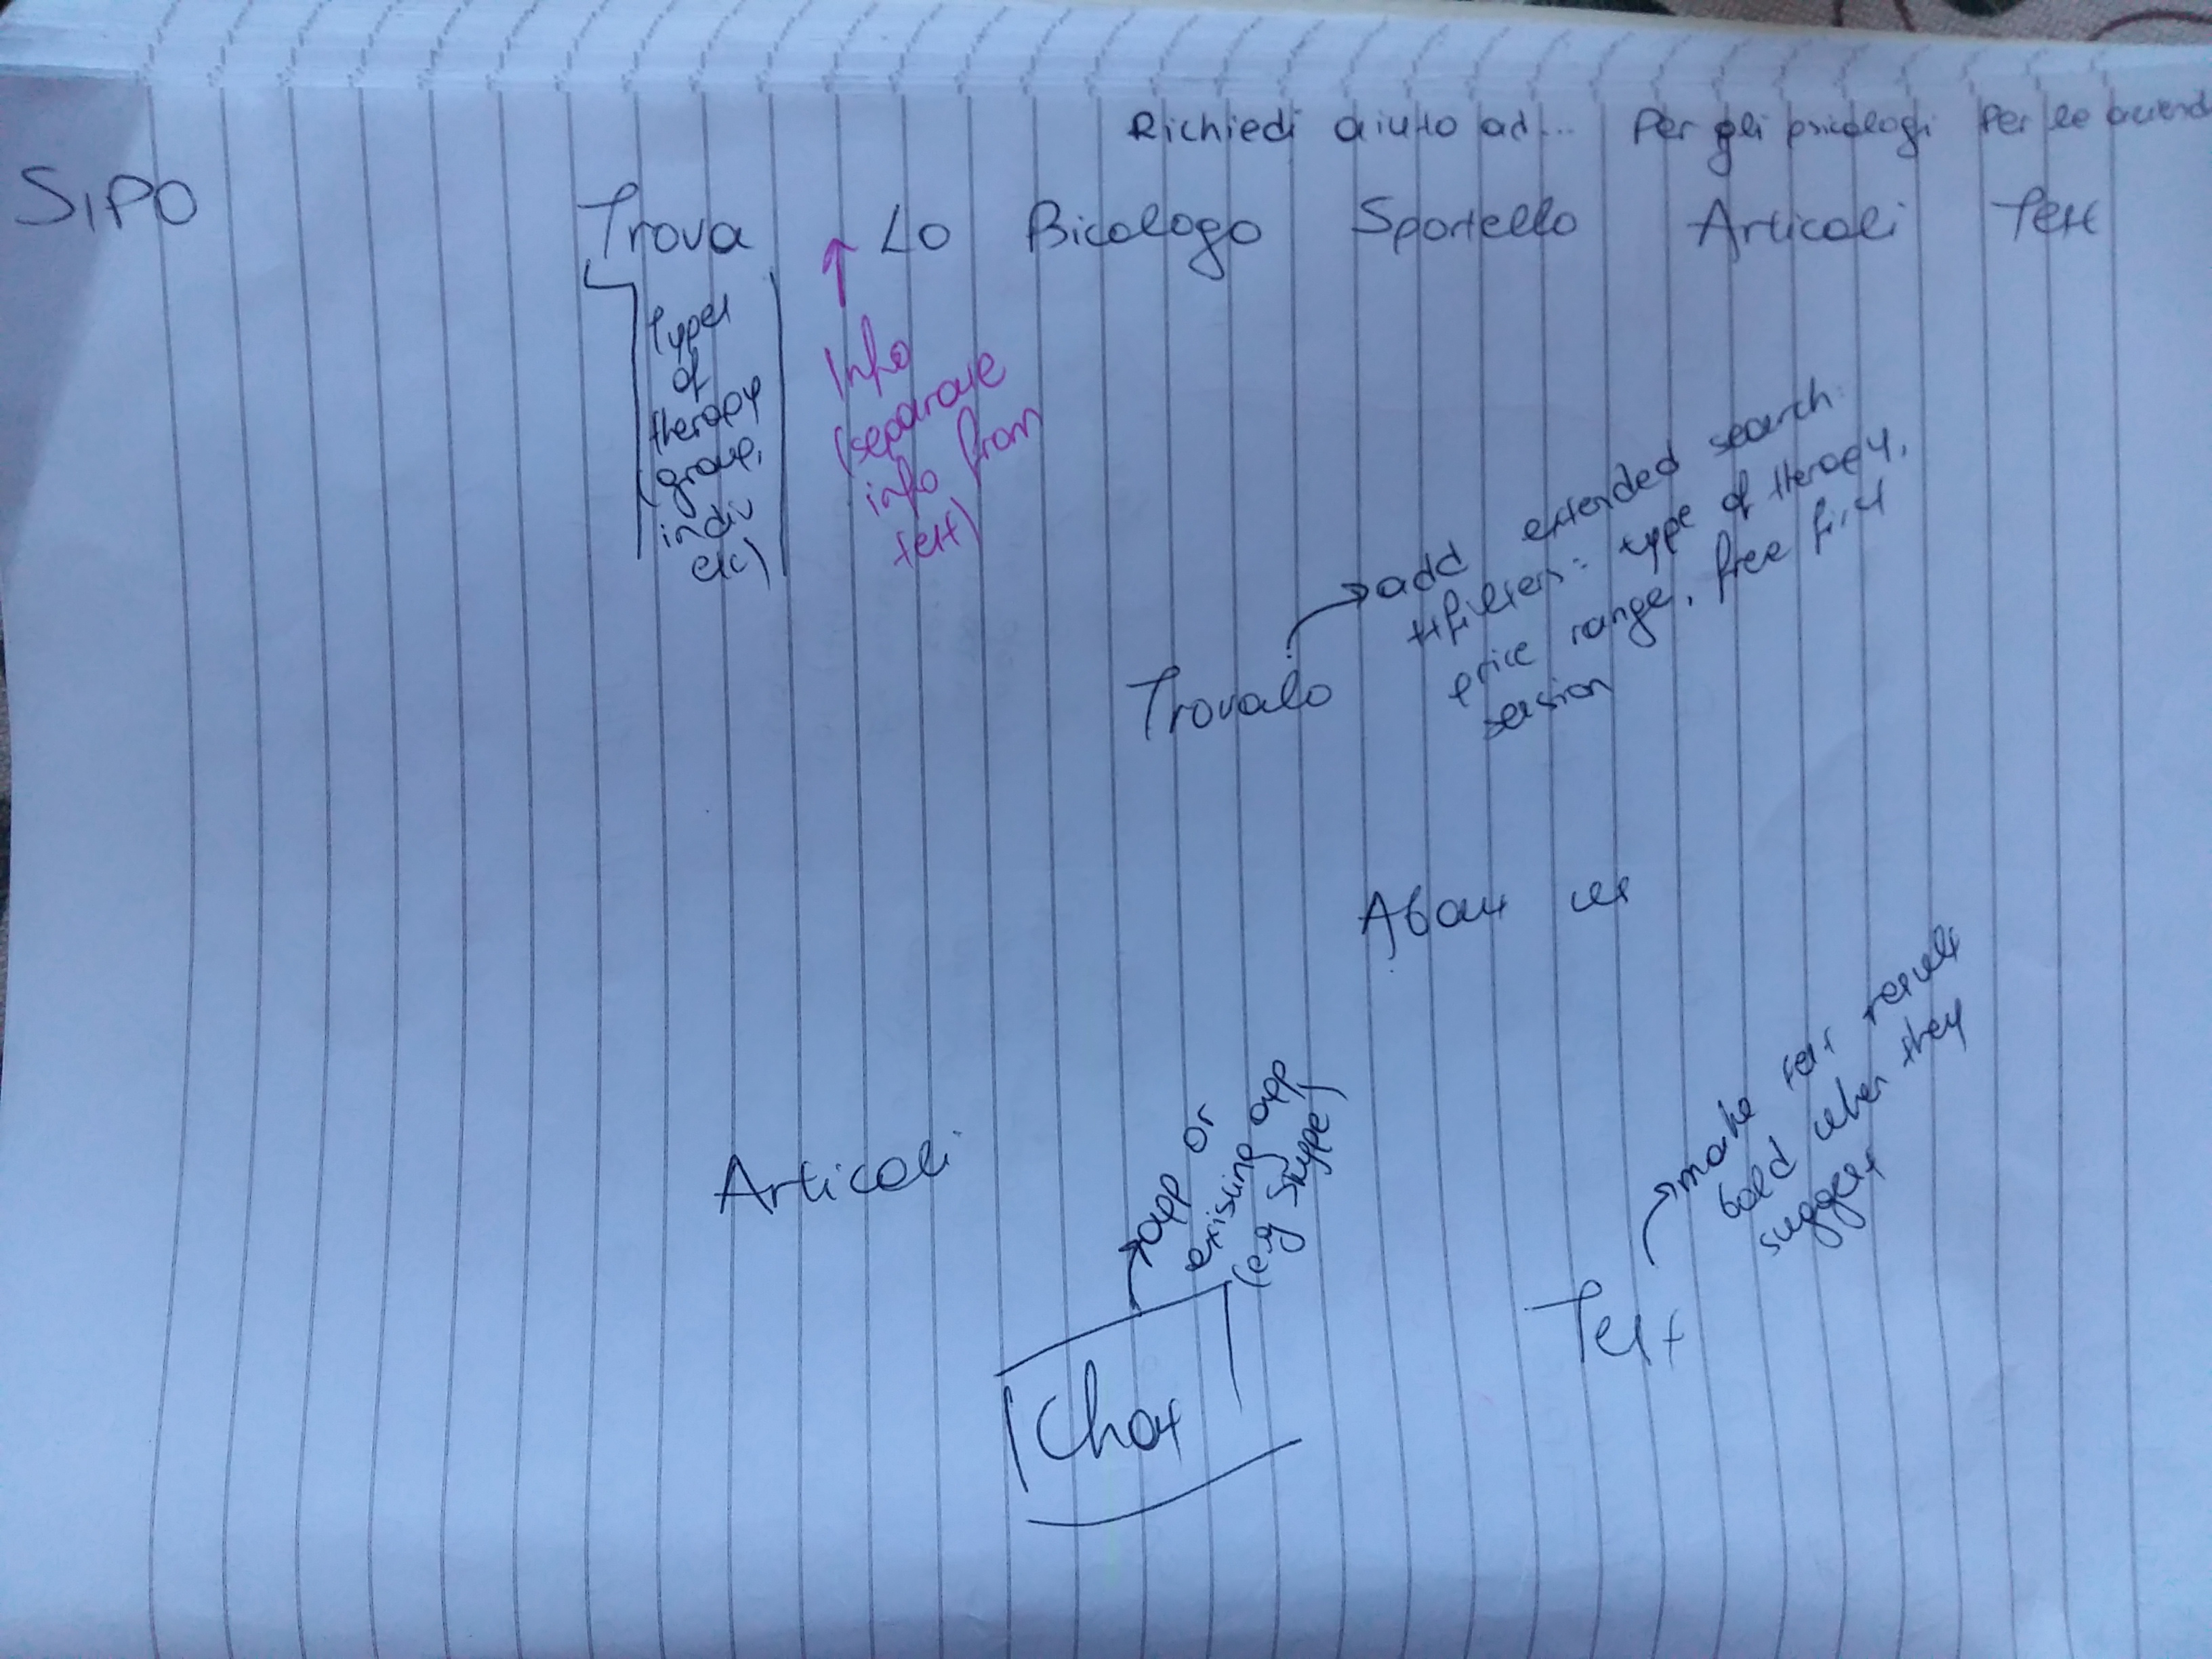 Richiedi aiuto ad... Per gli psicologi Per le aziend
SIPO Trova Lo Psicologo Sportello Articoli Test
Types
of
therapy
(group,
indiv
etc)
Info
(separate
info from
test)
Trovalo
add extended search
+ filters: type of therapy,
price range, free first
session
About us
Articoli
app or
existing app
(e.g Skype)
Chat
Test
make test results
bold when they
suggest